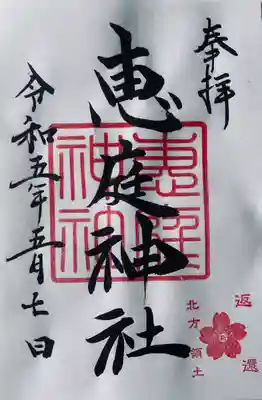 奉拝
恵庭神社
令和五年五月七日
恵庭
神社
返還
北方領土